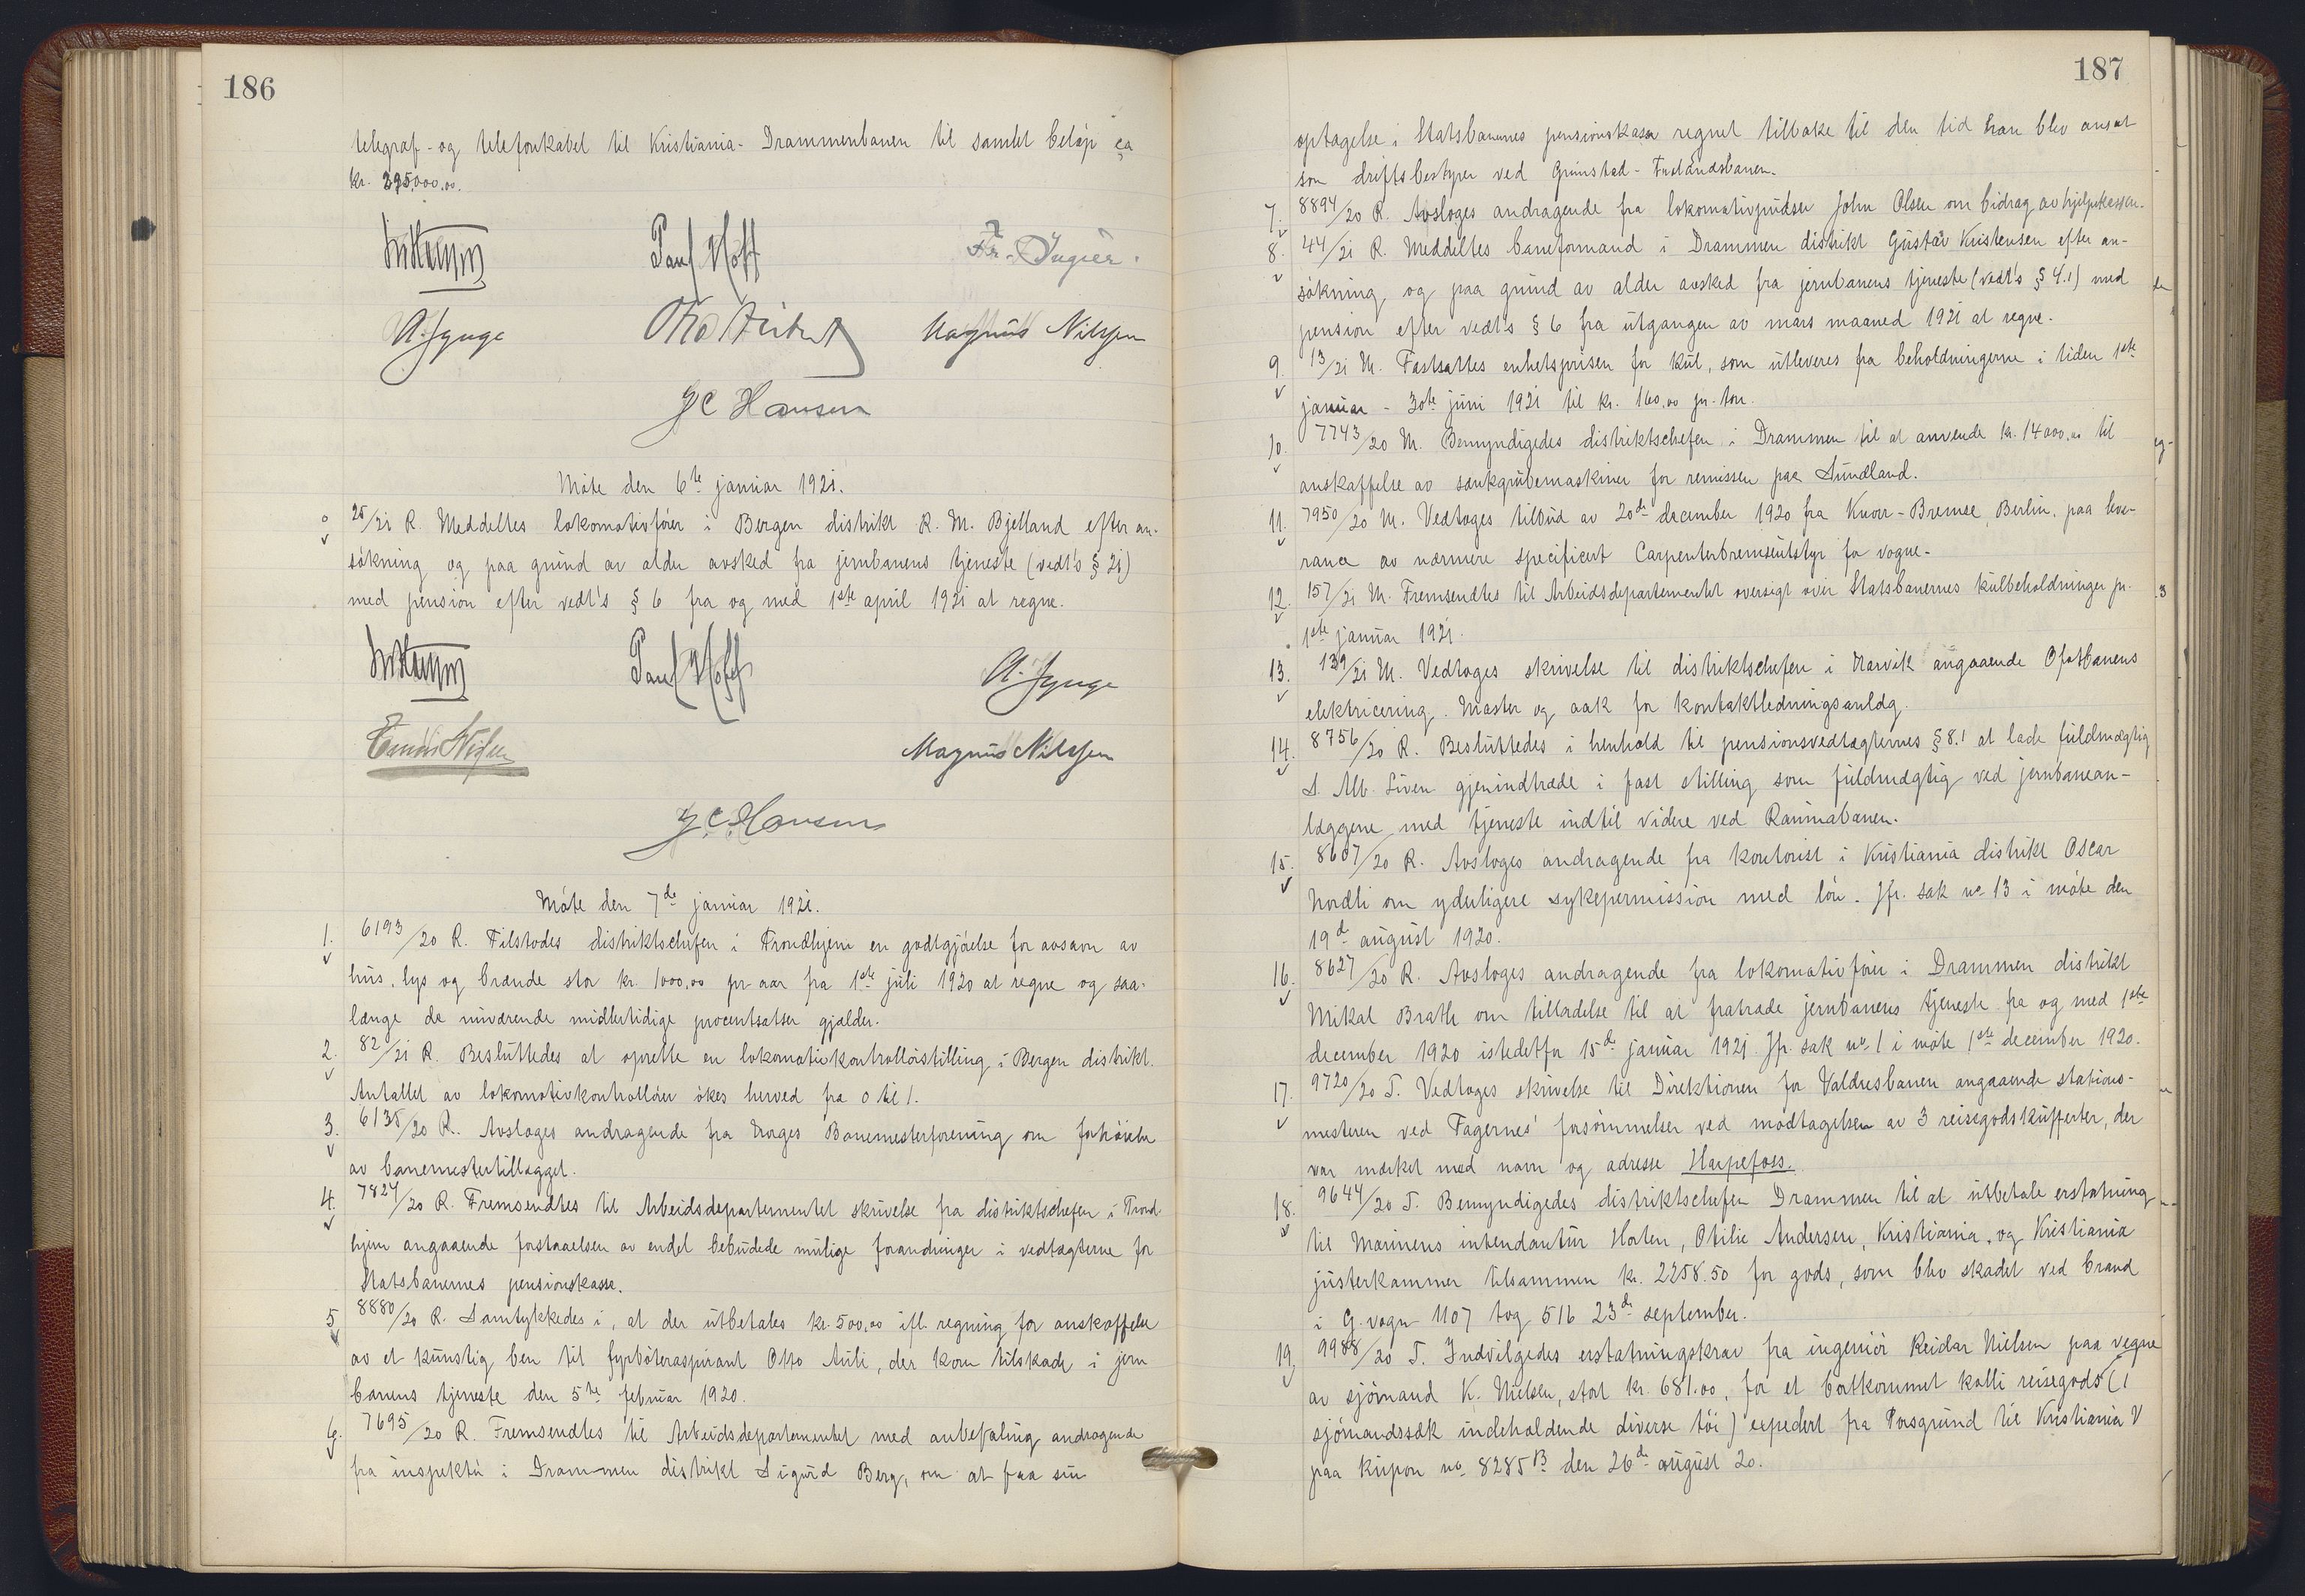 186
telegraf- og telefonkabel til Kristiania-Drammenbanen til samlet beløp ca
kr. 395000.00.
Paul Hoff
A. Lynge
Magnus Nilssen
J C Hansen
Møte den 6te januar 1921.
25/21 R. Meddeltes lokomotivfører i Bergen distrikt R. M. Bjelland efter an-
søkning og paa grund av alder avsked fra jernbanens tjeneste (vedt's § 21)
med pension efter vedt's § 6 fra og med 1ste april 1921 at regne.
Paul Hoff
A. Lynge
Magnus Nilssen
J. C. Hansen
Møte den 7de januar 1921.
1. 6193/20 R. Tilstodes distriktschefen i Trondhjem en godtgjørelse for avsavn av
hus, lys og brænde stor kr. 1000,00 pr aar fra 1ste juli 1920 at regne og saa-
længe de nuværende midlertidige procentsatser gjælder.
2. 82/21 R. Besluttedes at oprette en lokomotivkontrollørstilling i Bergen distrikt.
Antallet av lokomotivkontrollører økes herved fra 0 til 1.
3. 6135/20 R. Avsloges andragende fra Norges Banemesterforening om forhøielse
av banemestertillægget.
4. 7827/20 R. Fremsendtes til Arbeidsdepartementet skrivelse fra distriktschefen i Trond-
hjem angaaende forstaaelsen av endel bebudede mulige forandringer i vedtægterne for
Statsbanernes pensionskasse.
5. 8880/20 R. Samtykkedes i, at der utbetales kr. 500,00 ifl. regning for anskaffelse
av et kunstig ben til fyrbøteraspirant Otto Auli, der kom tilskade i jern
banens tjeneste den 5te februar 1920.
6. 7695/20 R. Fremsendtes til Arbeidsdepartementet med anbefaling andragende
fra inspektør i Drammen distrikt Sigurd Berg, om at faa sin
187
optagelse i Statsbanernes pensionskasse regnet tilbake til den tid han blev ansat
som driftsbestyrer ved Grimstad-Frolandsbanen.
7. 8894/20 R. Avsloges andragende fra lokomotivpudser John Olsen om bidrag av hjelpekassen.
8. 44/21 R. Meddeltes baneformand i Drammen distrikt Gustav Kristensen efter an-
søkning, og paa grund av alder avsked fra jernbanens tjeneste (vedt's § 4.1) med
pension efter vedt's § 6 fra utgangen av mars maaned 1921 at regne.
9. 13/21 M. Fastsattes enhetsprisen for kul, som utleveres fra beholdningerne i tiden 1ste
januar - 30te juni 1921 til kr. 160,00 pr. ton.
10. 7743/20 M. Bemyndigedes distriktschefen i Drammen til at anvende kr. 14000,00 til
anskaffelse av sænkgrubemaskiner for remissen paa Sundland.
11. 7950/20 M. Vedtoges tilbud av 20de december 1920 fra Knorr-Bremse, Berlin, paa leve-
rance av nærmere specificert Carpenterbremseutstyr for vogne.
12. 157/21 M. Fremsendtes til Arbeidsdepartementet oversigt over Statsbanernes kulbeholdninger pr.
1ste januar 1921.
13. 139/21 M. Vedtoges skrivelse til distriktschefen i Narvik angaaende Ofotbanens
elektricering. Master og aak for kontaktledningsanlæg.
14. 8756/20 R. Besluttedes i henhold til pensionsvedtægternes § 8.1 at lade fuldmægtig
S. Alb. Siven gjenindtræde i fast stilling som fuldmægtig ved jernbanean-
læggene med tjeneste indtil videre ved Raumabanen.
15. 8607/20 R. Avsloges andragende fra kontorist i Kristiania distrikt Oscar
Nordli om yderligere sykepermission med løn. Jfr. sak no 13 i møte den
19de august 1920.
16. 8627/20 R. Avsloges andragende fra lokomotivfører i Drammen distrikt
Mikal Brath om tilladelse til at fratræde jernbanens tjeneste fra og med 1ste
december 1920 istedetfor 15de januar 1921. Jfr. sak no. 1 i møte 1ste december 1920.
17. 9720/20 T. Vedtoges skrivelse til Direktionen for Valdresbanen angaaende stations-
mesteren ved Fagernes' forsømmelser ved mottagelsen av 3 reisegodskufferter, der
var merket med navn og adresse Harpefoss.
18. 9644/20 T. Bemyndigedes distriktschefen Drammen til at utbetale erstatning
til Marinens intendantur Horten, Otilie Andersen, Kristiania, og Kristiania
justerkammer tilsammen kr. 2258.50 for gods, som blev skadet ved brand
i G. vogn 1107 tog 516 23de september.
19. 9988/20 T. Indvilgedes erstatningskrav fra ingeniør Reidar Nielsen paa vegne
av sjømand K. Nielsen, stort kr. 681.00, for et bortkommet kolli reisegods (1
sjømandssæk indeholdende diverse tøi) expedert fra Porsgrund til Kristiania V
paa kupon no. 8285 B den 26de august 20.